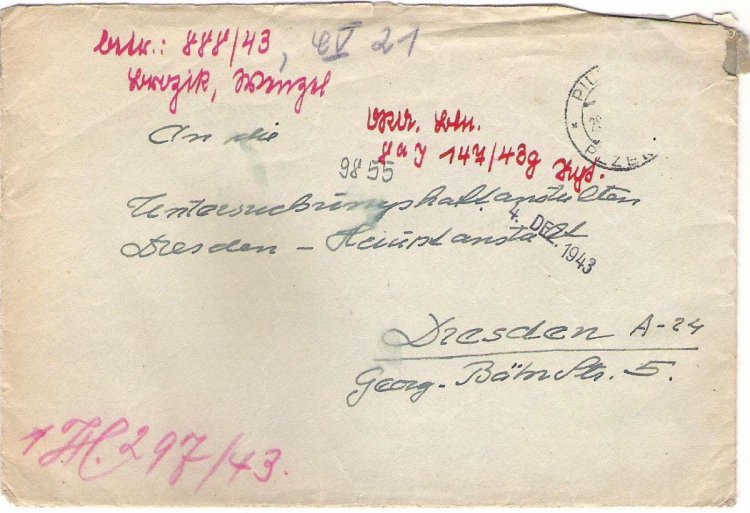 betr.: 888/43, C V 21
Brozik, Wenzel
PIL
PLZEŇ
An die
9855
8 a J 147/43g
Untersuchungshaftanstalten
Dresden - Hauptanstalt
4. DEZ. 1943
Dresden A-24
Georg-Bähr Str. 5.
297/43.